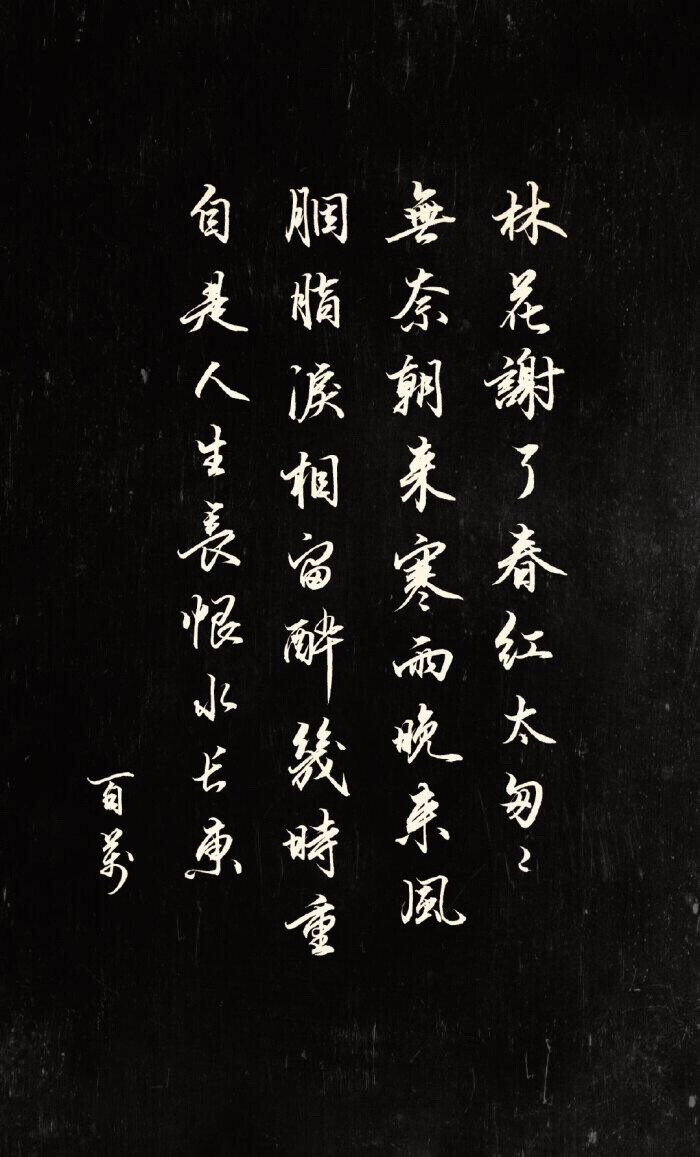 林花謝了春红太匆〻
無奈朝来寒雨晚来風
胭脂淚相留醉幾時重
自是人生長恨水长東
百萬